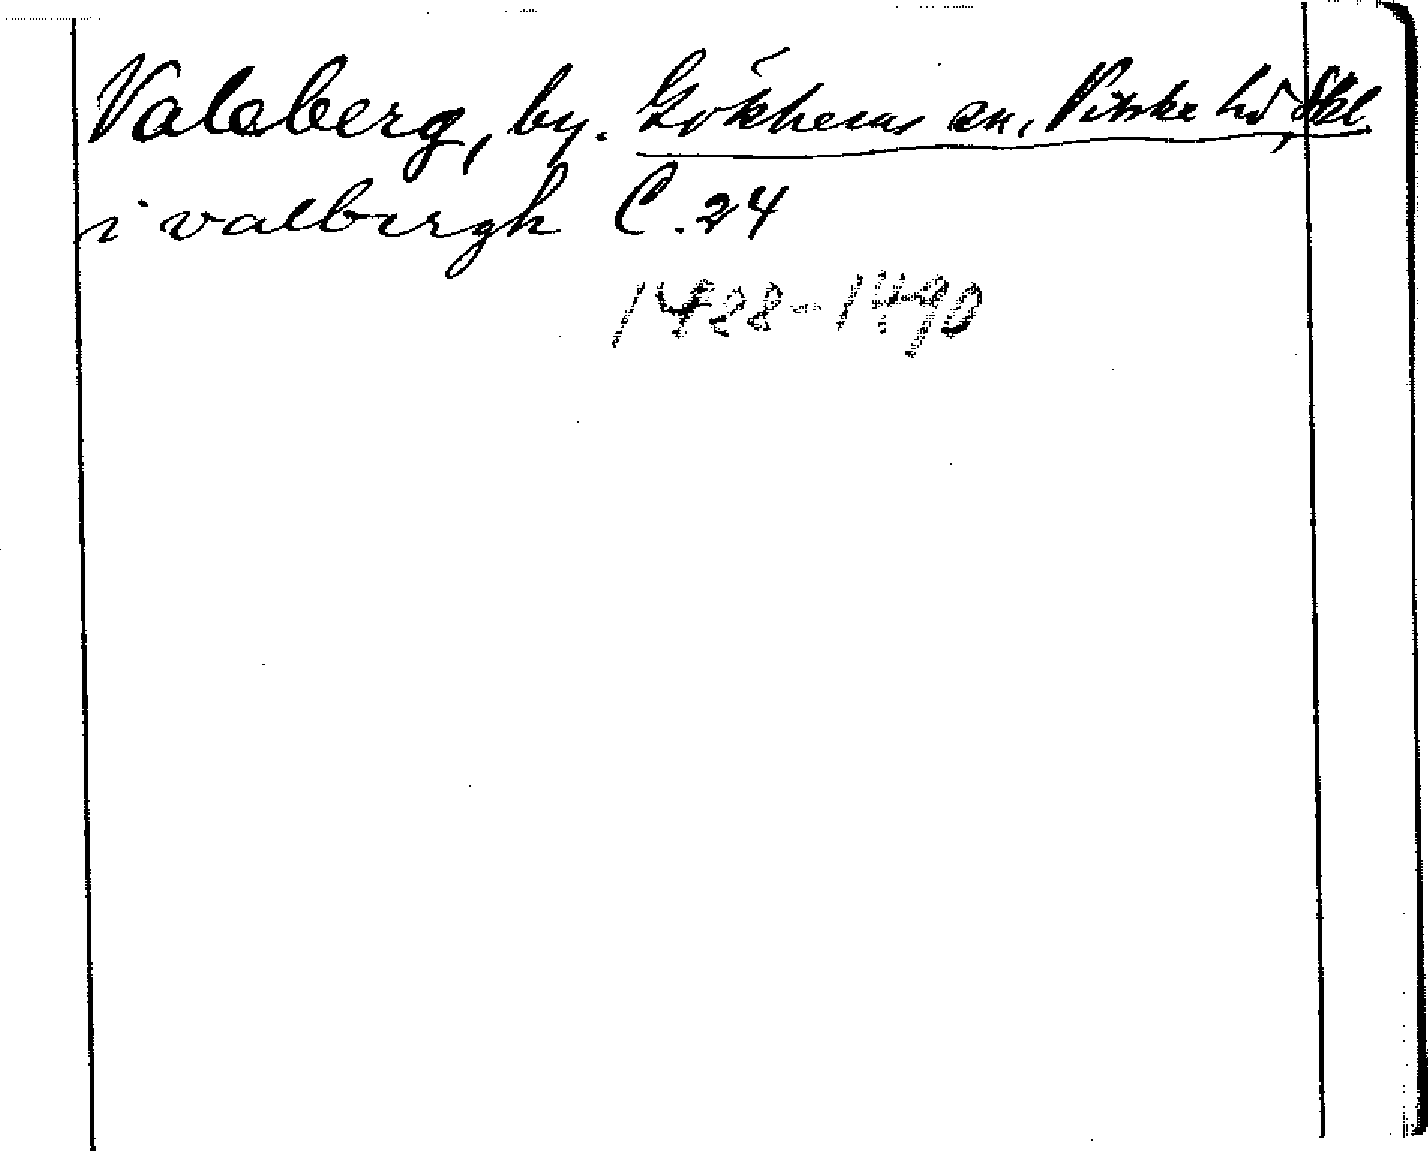 Valeberg, by. Gökhems sn, Vilske hd, Skbl
i valbergh C. 24
1428-1490